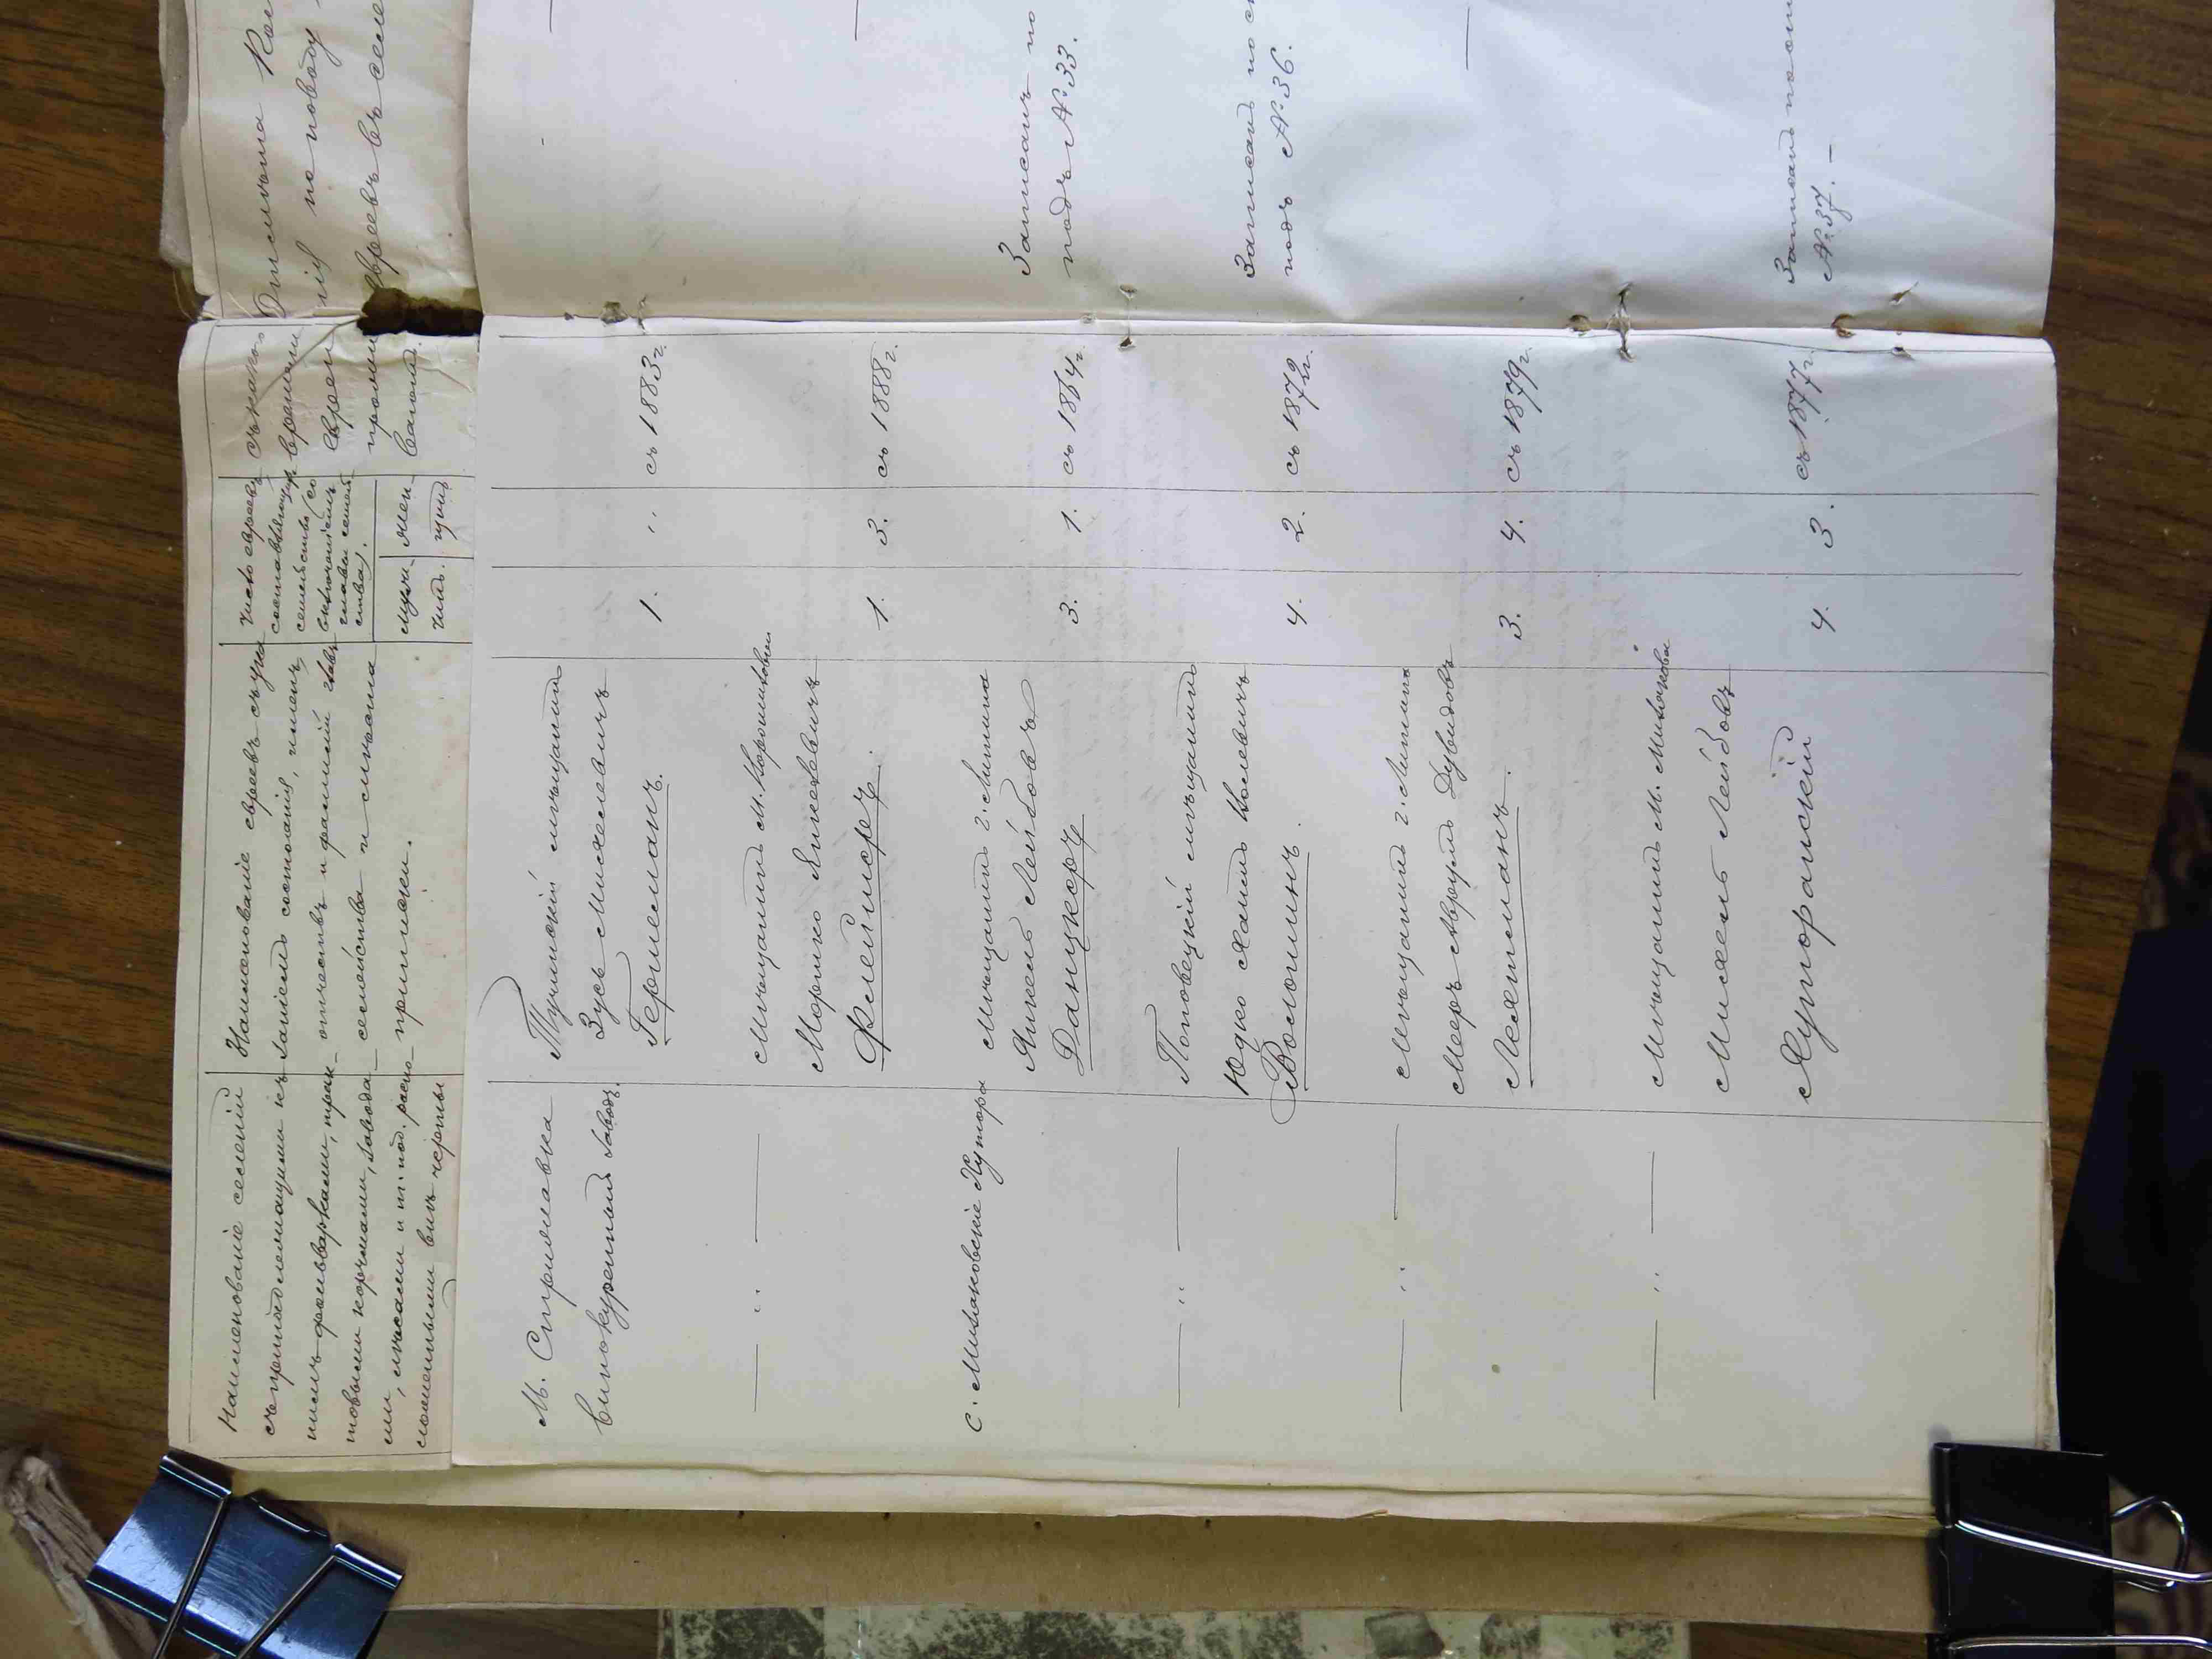 Наименованіе селеній
съ принадлежащими къ
нимъ фольварками, трак-
товыми корчмами, завода-
ми, лѣсами и т. под. распо-
ложенными внѣ черты
Наименованіе евреевъ съ указа
заніемъ состоянія, именъ,
отчествъ и фамилій главъ
семейства и мѣстна
приписки.
Число евреевъ
составляющихъ
семейство (со
включеніемъ
главы семей
ства).
мужч.
жен-
щинъ
съ какого
времени
евреи
прожи
ваютъ.
Отмѣтка
нія по поводу
евреевъ въ селе
М. Стрижавка
винокуренный заводъ.
мѣщанинъ
Зусь Михелевичъ
Гершманъ.
1.
"
съ 1883 г.
— " —
Мѣщанинъ м. Ворошиловки
Мортко Янкевичъ
Флейшеръ.
1.
3.
съ 1888 г.
С. Мизяковскіе Хутора
Мѣщанинъ г. Литина
Янкель Лейбовъ
Данцкеръ
3.
1.
съ 1864 г.
Записанъ по
подъ № 33.
— " —
мѣщанинъ
Юдко Хаимъ Иослевичъ
Волошинъ.
4.
2.
съ 1872 г.
Записанъ по
подъ № 36.
— " —
Мѣщанинъ г. Литина
Мееръ Аврумъ Дувидовъ
Лехтманъ.
3.
4.
съ 1879 г.
— " —
Мѣщанинъ м. Мизякова
Михель Лейбовъ
Хуторанскій
4.
3.
съ 1877 г.
Записанъ
№ 37. —